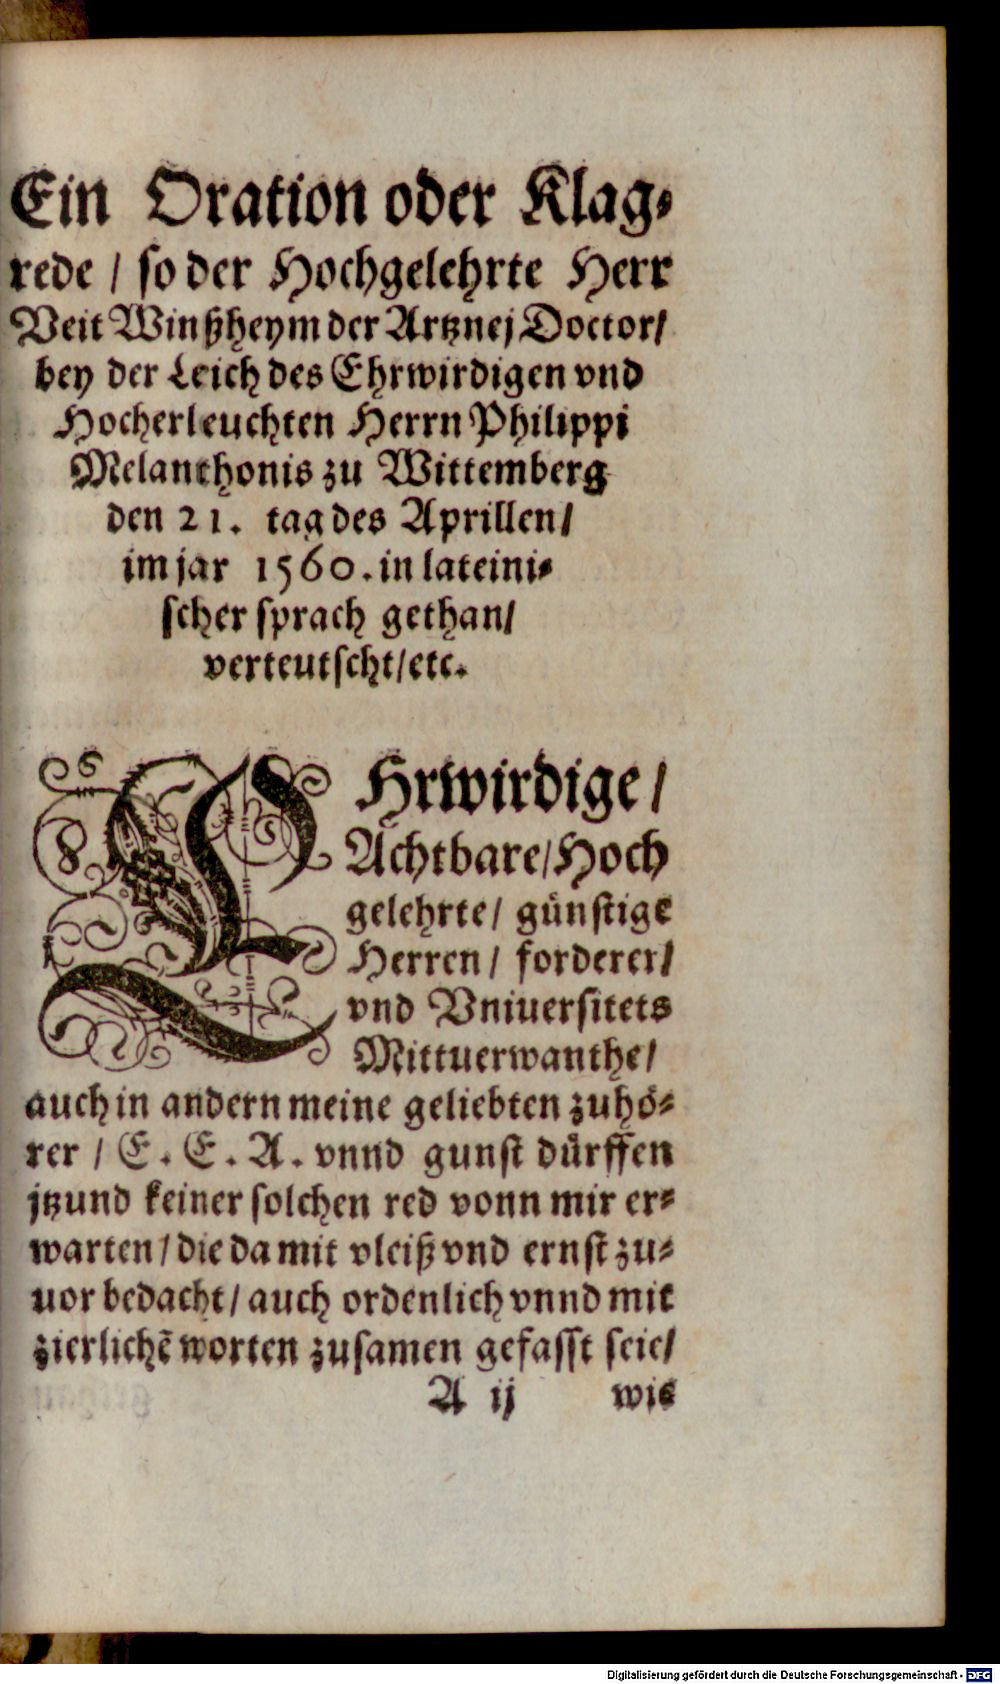 Ein Oration oder Klag⸗
rede / so der Hochgelehrte Herr
Veit Winßheym der Artznej Doctor/
bey der Leich des Ehrwirdigen vnd
Hocherleuchten Herrn Philippi
Melanthonis zu Wittemberg
den 21. tag des Aprillen/
im jar 1560. in lateini⸗
scher sprach gethan/
verteutscht/etc.
EHrwirdige/
Achtbare/Hoch
gelehrte/ günstige
Herren/ forderer/
vnd Vniuersitets
Mittuerwanthe/
auch in andern meine geliebten zuhö⸗
rer / E. E. A. vnnd gunst dürffen
jtzund keiner solchen red vonn mir er⸗
warten/die da mit vleiß vnd ernst zu⸗
uor bedacht/auch ordenlich vnnd mit
zierlichẽ worten zusamen gefasst seie/
A ij wie
Digitalisierung gefördert durch die Deutsche Forschungsgemeinschaft - DFG